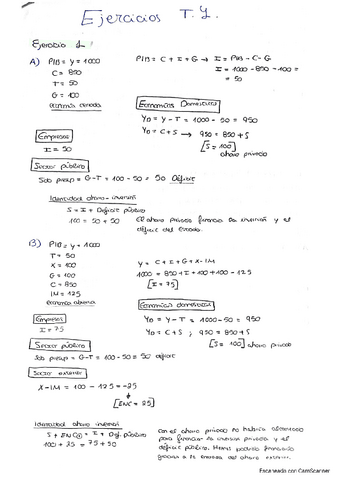 Ejercicios T. 4.
Ejercicio 1
A) PIB = Y = 1000
C = 850
T = 50
G = 100
economía cerrada
PIB = C + I + G → I = PIB - C - G
I = 1000 - 850 - 100 =
= 50
Economías Domésticas
YD = Y - T = 1000 - 50 = 950
YD = C + S → 950 = 850 + S
[S = 100]
ahorro privado
Empresas
I = 50
Sector público
Sdo presup = G - T = 100 - 50 = 50 Déficit
Identidad ahorro - inversión
S = I + Déficit público
100 = 50 + 50
El ahorro privado financia la inversión y el
déficit del Estado.
B) PIB = Y = 1000
T = 50
X = 100
G = 100
C = 850
IM = 125
economía abierta
Y = C + I + G + X - IM
1000 = 850 + I + 100 + 100 - 125
[I = 75]
Economías domésticas
YD = Y - T = 1000 - 50 = 950
YD = C + S ; 950 = 850 + S
[S = 100] ahorro privado
Empresas
I = 75
Sector público
Sdo presup = G - T = 100 - 50 = 50 déficit
Sector exterior
X - IM = 100 - 125 = -25
[ENC = 25]
Identidad ahorro inversión
S + ENC = I + Def. público
100 + 25 = 75 + 50
Con el ahorro privado no habría
para financiar la inversión privada y el
déficit público. Hemos podido financiarlo
gracias a la entrada del ahorro exterior.
Escaneado con CamScanner